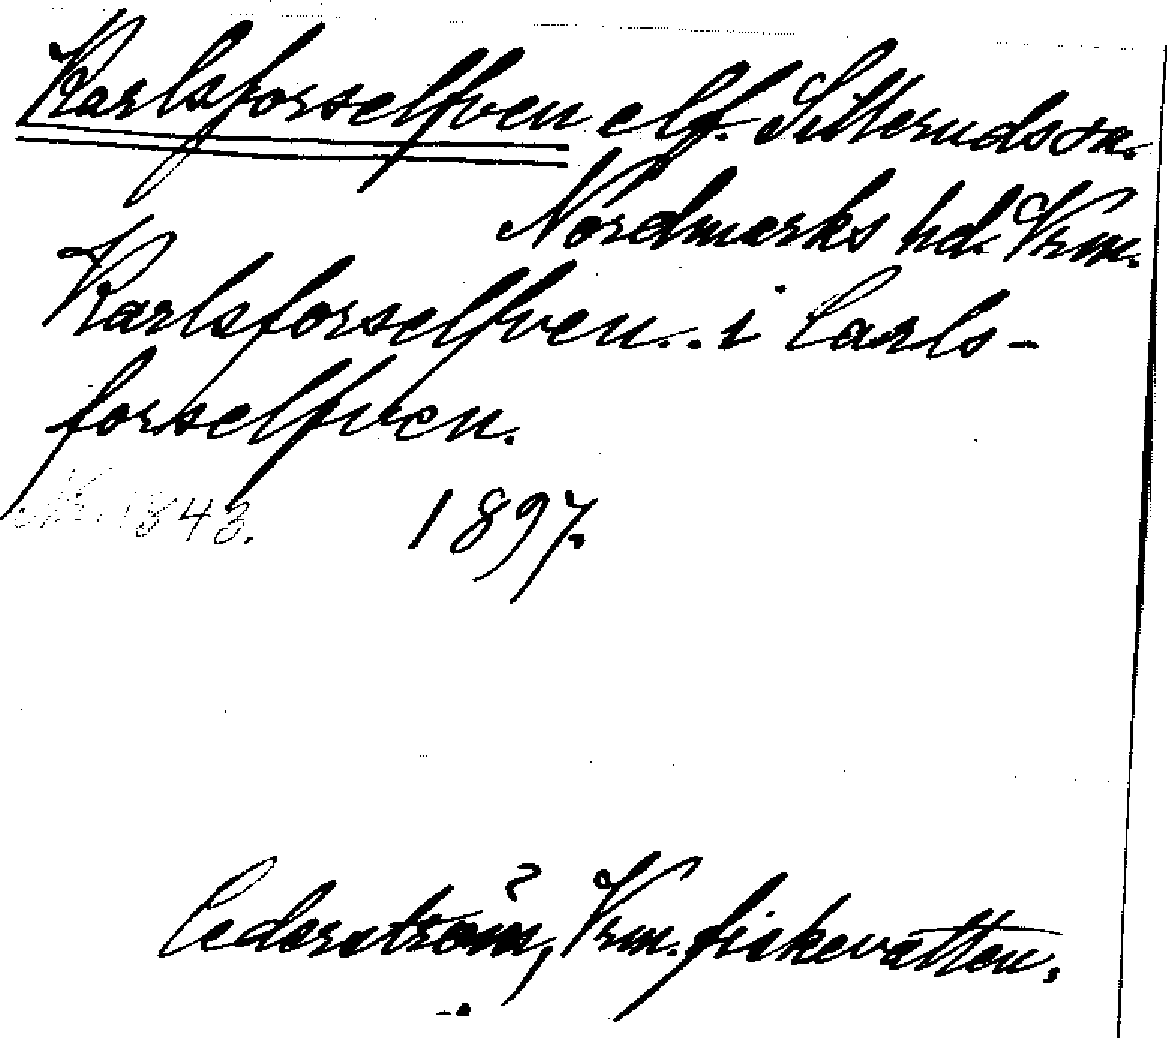 Karlsforselfven elf. Sillerudssn.
Nordmarks hd. Vrm.
Karlsforselfven.. i Carls-
forselfven.
1843. 1897.
Cederström, Vrm. fiskevatten.